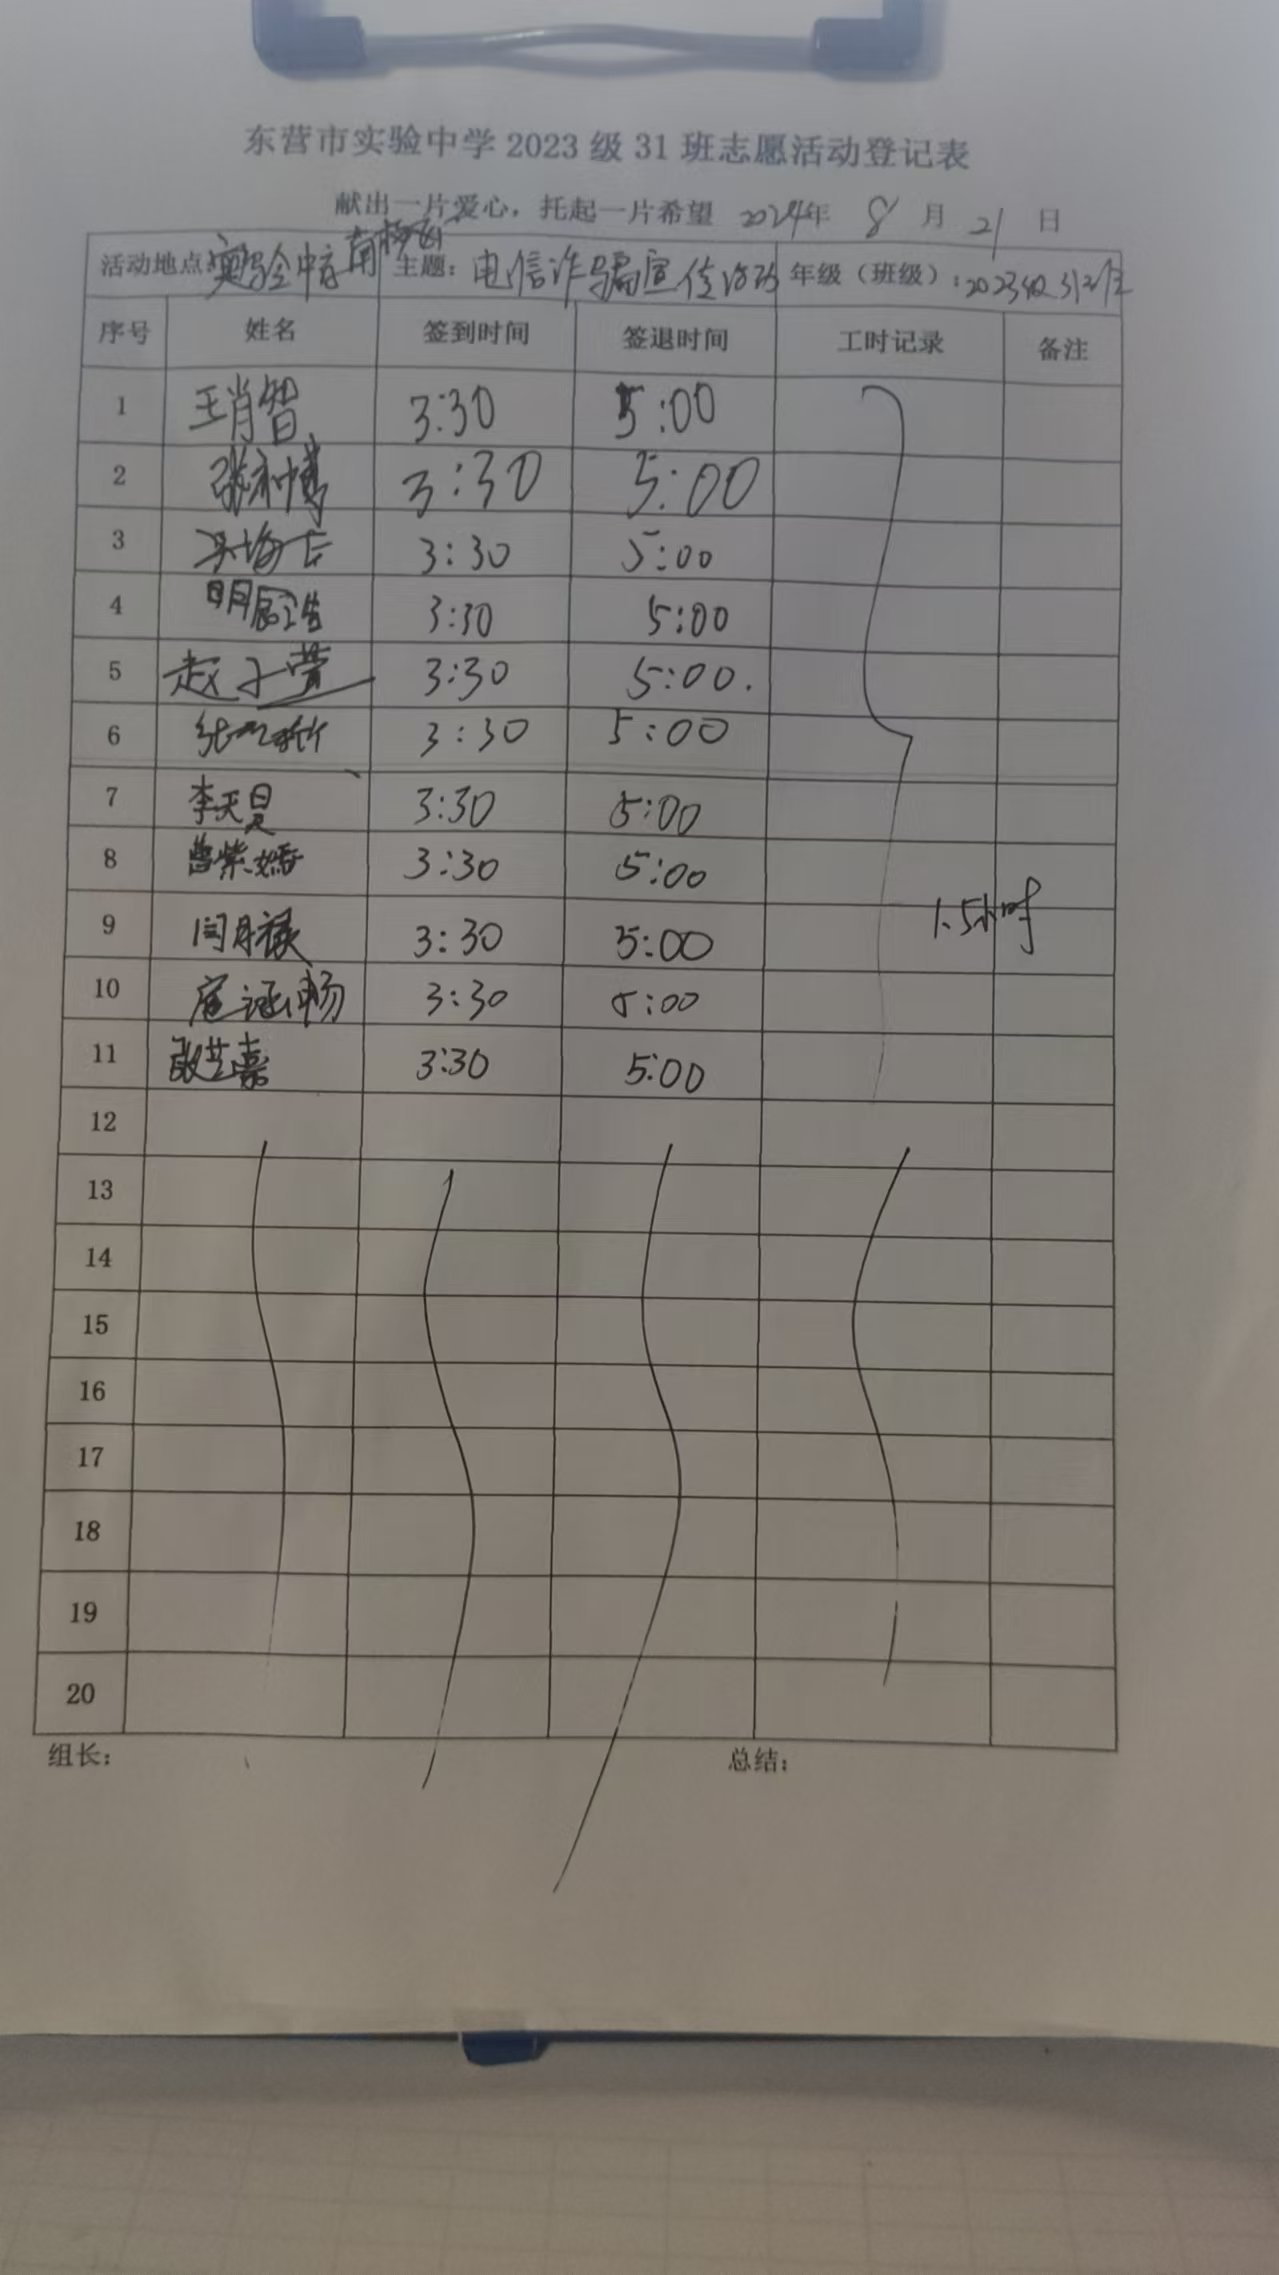 东营市实验中学 2023 级 31 班志愿活动登记表
献出一片爱心，托起一片希望 2024年 8 月 21 日
活动地点：实验中学南校 主题：电信诈骗宣传 年级（班级）：2023级31班
序号 姓名 签到时间 签退时间 工时记录 备注
1 王肖智 3:30 5:00
2 张 博 3:30 5:00
3 3:30 5:00
4 明 浩 3:30 5:00
5 赵子营 3:30 5:00.
6 张 3:30 5:00
7 李天昊 3:30 5:00
8 曹紫嫣 3:30 5:00
9 闫月禄 3:30 5:00
1.5小时
10 畅 3:30 5:00
11 张芝嘉 3:30 5:00
12
13
14
15
16
17
18
19
20
组长： 总结：